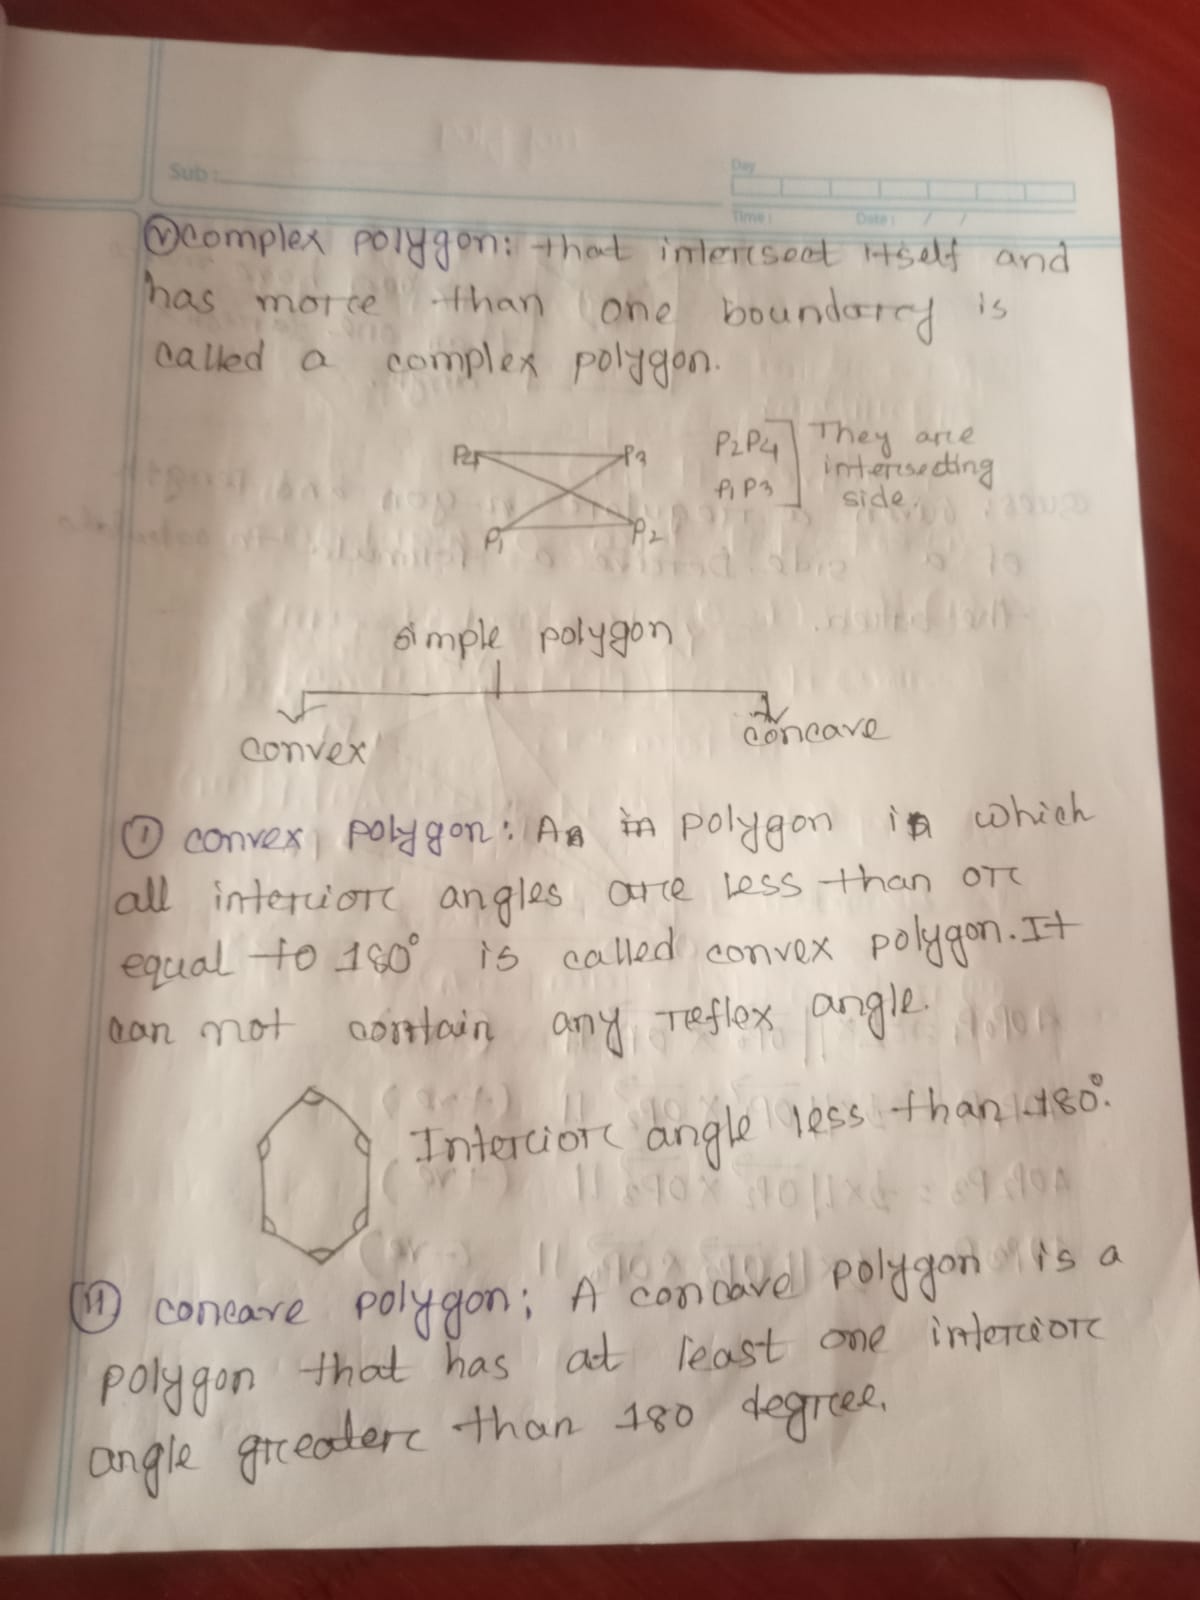 Sub:
Day
Time:
Date: / /
(v) complex polygon: that intersect itself and
has more than one boundary is
called a complex polygon.
P4 P3
P1 P2
P2P4 They are
intersecting
P1P3 side.
simple polygon
convex concave
(i) convex polygon: A polygon in which
all interior angles are less than or
equal to 180° is called convex polygon. It
can not contain any reflex angle.
Interior angle less than 180°.
(ii) concave polygon: A concave polygon is a
polygon that has at least one interior
angle greater than 180 degree.